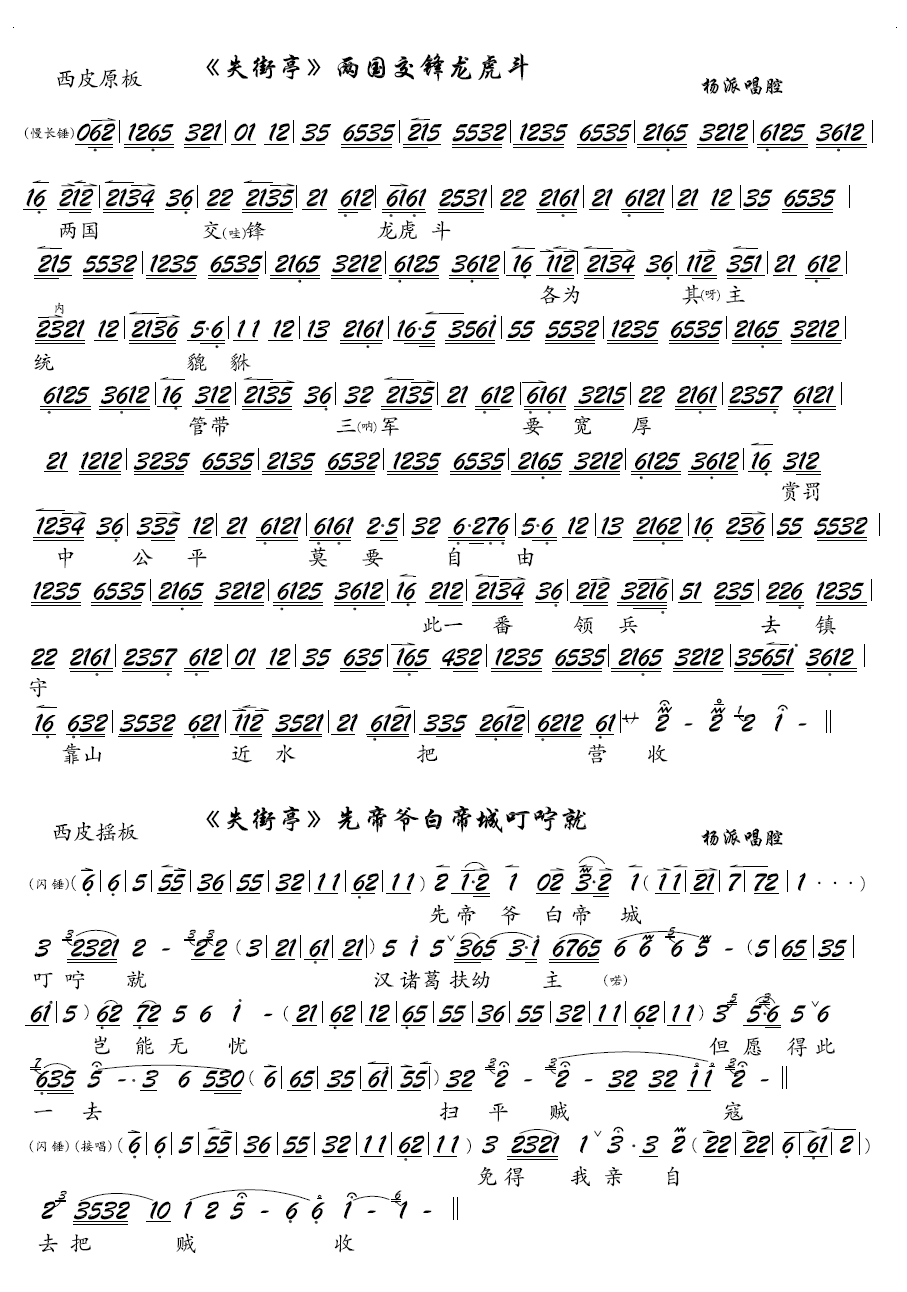 西皮原板 《失街亭》两国交锋龙虎斗 杨派唱腔
(慢长锤) 062|1265 321|01 12|35 6535|215 5532|1235 6535|2165 3212|6125 3612|
16 212|2134 36|22 2135|21 612|6161 2531|22 2161|21 6121|21 12|35 6535|
两国 交(哇)锋 龙虎 斗
215 5532|1235 6535|2165 3212|6125 3612|16 112|2134 36|112 351|21 612|
各为 其(呀)主
内
2321 12|2136 5·6|11 12|13 2161|16·5 3561|55 5532|1235 6535|2165 3212|
统 貔 貅
6125 3612|16 312|2135 36|32 2135|21 612|6161 3215|22 2161|2357 6121|
管带 三(呐)军 要 宽 厚
21 1212|3235 6535|2135 6532|1235 6535|2165 3212|6125 3612|16 312
赏罚
1234 36|335 12|21 6121|6161 2·5|32 6·276|5·6 12|13 2162|16 236|55 5532|
中 公 平 莫 要 自 由
1235 6535|2165 3212|6125 3612|16 212|2134 36|212 3216|51 235|226 1235|
此一 番 领 兵 去 镇
22 2161|2357 612|01 12|35 635|165 432|1235 6535|2165 3212|35651 3612|
守
16 632|3532 621|112 3521|21 6121|335 2612|6212 61|サ 2 - 2 1 2 1 - ‖
靠山 近 水 把 营 收
西皮摇板 《失街亭》先帝爷白帝城叮咛就 杨派唱腔
(闪锤)(6|6|5|55|36|55|32|11|62|11) 2 1·2 1 02 3·2 1(11|21|7|72|1 ···)
先帝 爷 白帝 城
3 3 2321 2 - 3 2 3 2(3|21|61|21) 5 1 5 ˅365 3·1 6765 6 6 5 6 5 -(5|65|35|
叮咛 就 汉诸葛扶幼 主 (喏)
61|5) 62 72 5 6 1 -(21|62|12|65|55|36|55|32|11|62|11) 3 5 3 5·6 5 ˅6
岂 能无 忧 但愿 得此
7 635 5 -· 3 6 530(6|65|35|61|55) 32 3 2 - 3 2 - 32 32 11 3 2 - ‖
一 去 扫 平 贼 寇
(闪锤)(接唱)(6|6|5|55|36|55|32|11|62|11) 3 2321 1 ˅3 · 3 2(22|22|6|61|2|)
免得 我亲 自
2 3 3532 10 1 2 5 - 6 6 1 - 6 1 - ‖
去把 贼 收